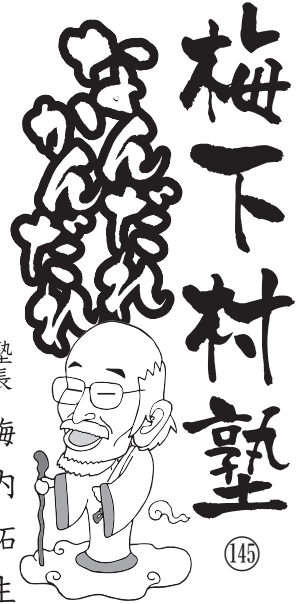 梅下村塾
145
なんだれ
かんだれ
塾長 梅内拓生